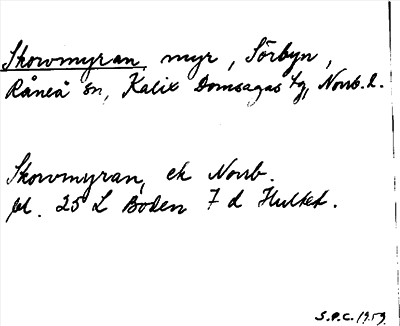 Skorvmyran, myr, Sörbyn,
Råneå sn, Kalix Domsagas tg, Norrb. l.
Skorvmyran, ek Norrb.
bl. 25 L Boden 7 d Hulket.
S.P.C. 1959.